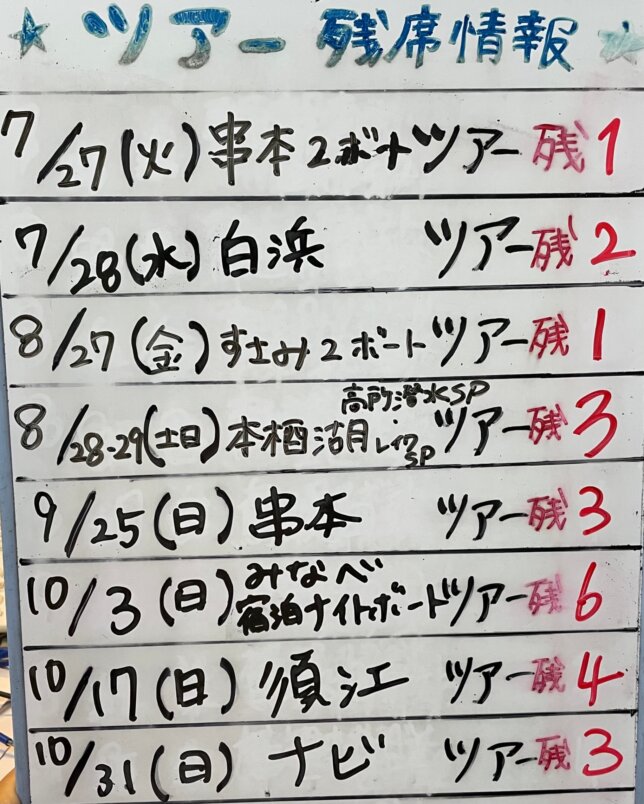 ★ ツアー 残席情報 ★
7/27(火)串本2ボートツアー残1
7/28(水)白浜 ツアー残2
8/27(金)すさみ2ボートツアー残1
高所潜水SP
8/28-29(土日)本栖湖・レイクSPツアー残3
9/25(日)串本 ツアー残3
みなべ
10/3(日)宿泊ナイトボートツアー残6
10/17(日)須江 ツアー残4
10/31(日)ナビ ツアー残3